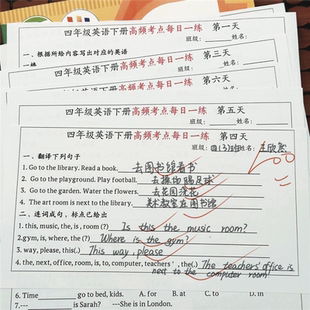 四年级英语下册高频考点每日一练 第一天
班级： 姓名：
一、根据所给内容写出对应的英语
四年级英语下册高频考点每日一练 第三天
班级： 姓名：
四年级英语下册高频考点每日一练 第六天
班级： 姓名：
四年级英语下册高频考点每日一练 第五天
四年级英语下册高频考点每日一练 第四天
班级：四(3)班 姓名：王欣
一、翻译下列句子
1. Go to the library. Read a book. 去图书馆看书
2. Go to the playground. Play football. 去操场踢足球
3. Go to the garden. Water the flowers. 去花园浇花
4. The art room is next to the library. 美术教室在图书馆
二、连词成句，标点已给出
1. this, music, the, is , room (?) Is this the music room?
2.gym, is, where, the (?) Where is the gym?
3. way, please, this(.) This way , please
4. the, next, office, room, is, to, computer, teachers' , the(.) The teachers' office is
next to the computer room!
6. Time go to bed, kids. A. for B. at C. to
7. --- is Sarah? ---She is in London.